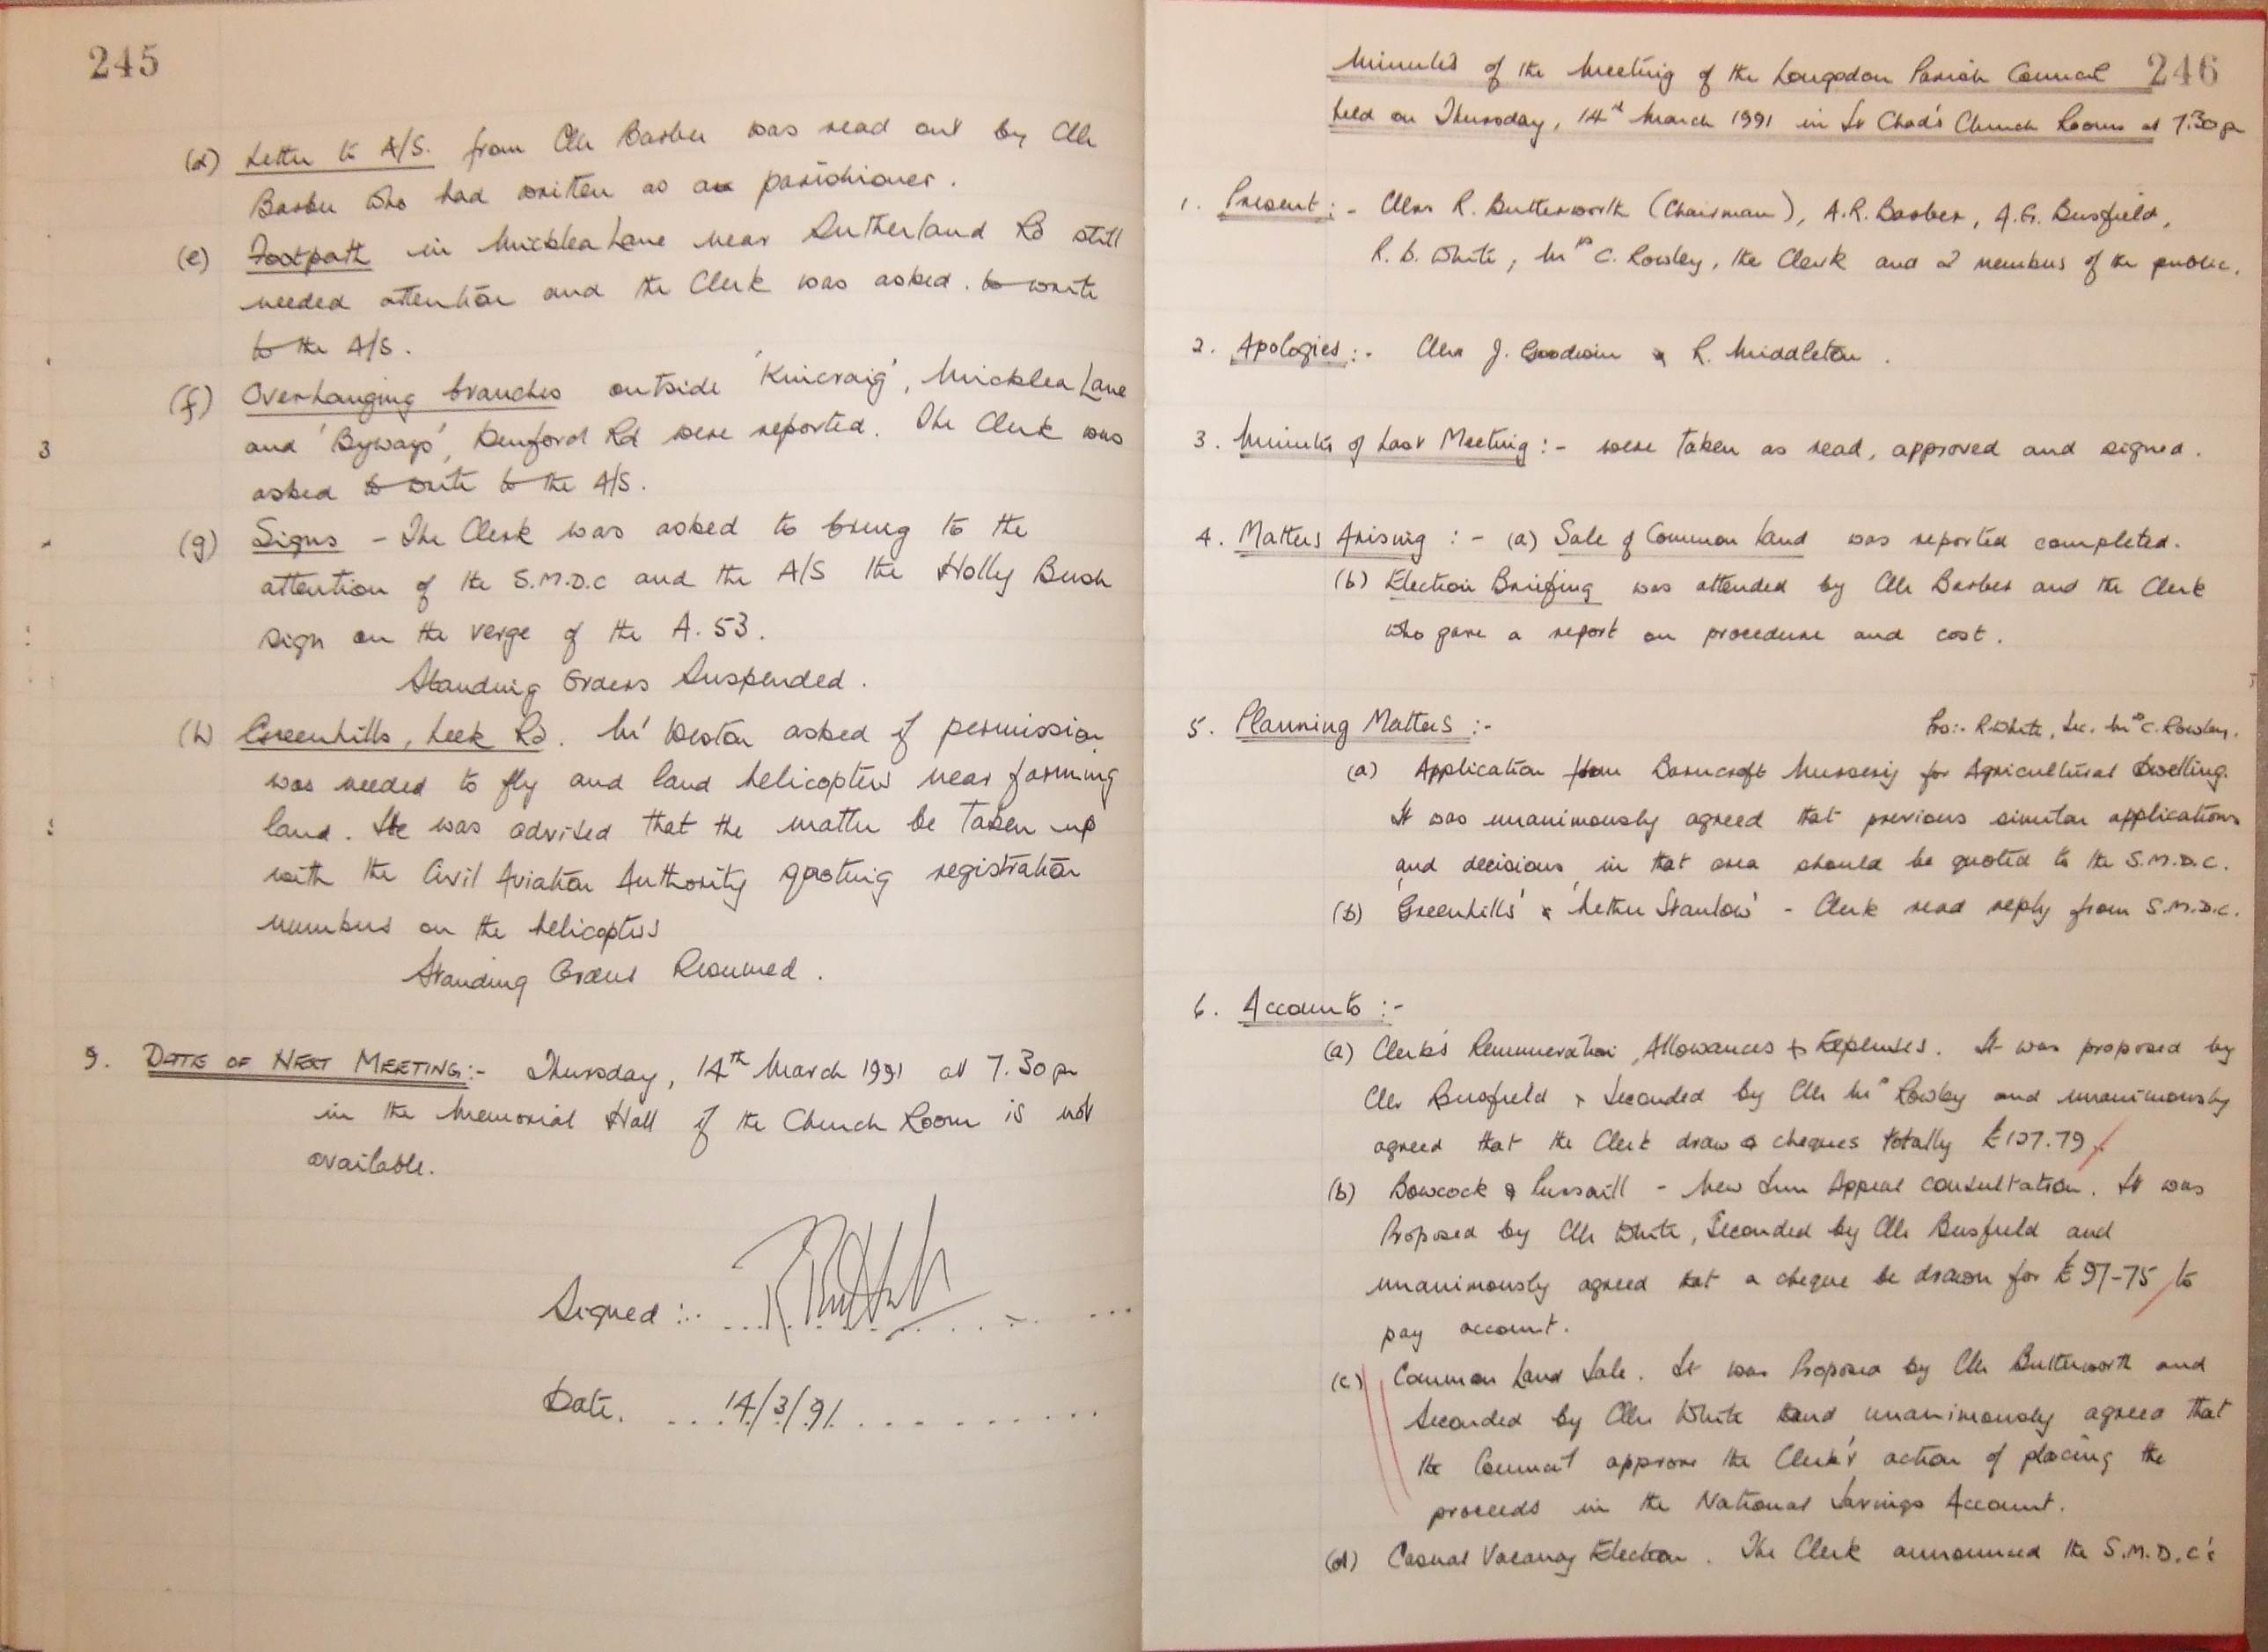 245
(d) Letter to A/S. from Cllr Barber was read out by Cllr
Barber who had written as a parishioner.
(e) Footpath in Micklea Lane near Sutherland Rd still
needed attention and the Clerk was asked. to write
to the A/S.
(f) Overhanging branches outside 'Kincraig', Micklea Lane
and 'Byways', Denford Rd were reported. The Clerk was
asked to write to the A/S.
(g) Signs - The Clerk was asked to bring to the
attention of the S.M.D.C and the A/S the Holly Bush
sign on the verge of the A.53.
Standing Orders Suspended.
(h) Greenhills, Leek Rd. Mr Weston asked if permission
was needed to fly and land helicopters near farming
land. He was advised that the matter be taken up
with the Civil Aviation Authority quoting registration
numbers on the helicopters
Standing Orders Resumed.
9. DATE OF NEXT MEETING:- Thursday, 14th March 1991 at 7.30pm
in the Memorial Hall if the Church Room is not
available.
Signed :-
Date. 14/3/91
3
Minutes of the Meeting of the Longsdon Parish Council 246
held on Thursday, 14th March 1991 in St Chad's Church Rooms at 7.30pm
1. Present :- Cllrs R. Butterworth (Chairman), A.R. Barber, A.G. Busfield,
R.D. White, Mrs C. Rowley, the Clerk and 2 members of the public.
2. Apologies :- Cllrs J. Goodwin & R. Middleton.
3. Minutes of Last Meeting :- were taken as read, approved and signed.
4. Matters Arising :- (a) Sale of Common Land was reported completed.
(b) Election Briefing was attended by Cllr Barber and the Clerk
who gave a report on procedure and cost.
5. Planning Matters :- Pro:- R.White, Sec. Mrs C. Rowley.
(a) Application from Barncroft Nursery for Agricultural Dwelling.
It was unanimously agreed that previous similar applications
and decisions, in that area should be quoted to the S.M.D.C.
(b) 'Greenhills' & 'Nether Stanlow' - Clerk read reply from S.M.D.C.
6. Accounts :-
(a) Clerk's Remuneration, Allowances & Expenses. It was proposed by
Cllr Busfield & Seconded by Cllr Mrs Rowley and unanimously
agreed that the Clerk draw cheques totally £137.79.
(b) Bowcock & Pursaill - New Inn Appeal consultation. It was
Proposed by Cllr White, Seconded by Cllr Busfield and
unanimously agreed that a cheque be drawn for £97-75 to
pay account.
(c) Common Land Sale. It was Proposed by Cllr Butterworth and
Seconded by Cllr White and unanimously agreed that
the Council approve the Clerk's action of placing the
proceeds in the National Savings Account.
(d) Casual Vacancy Election. The Clerk announced the S.M.D.C's